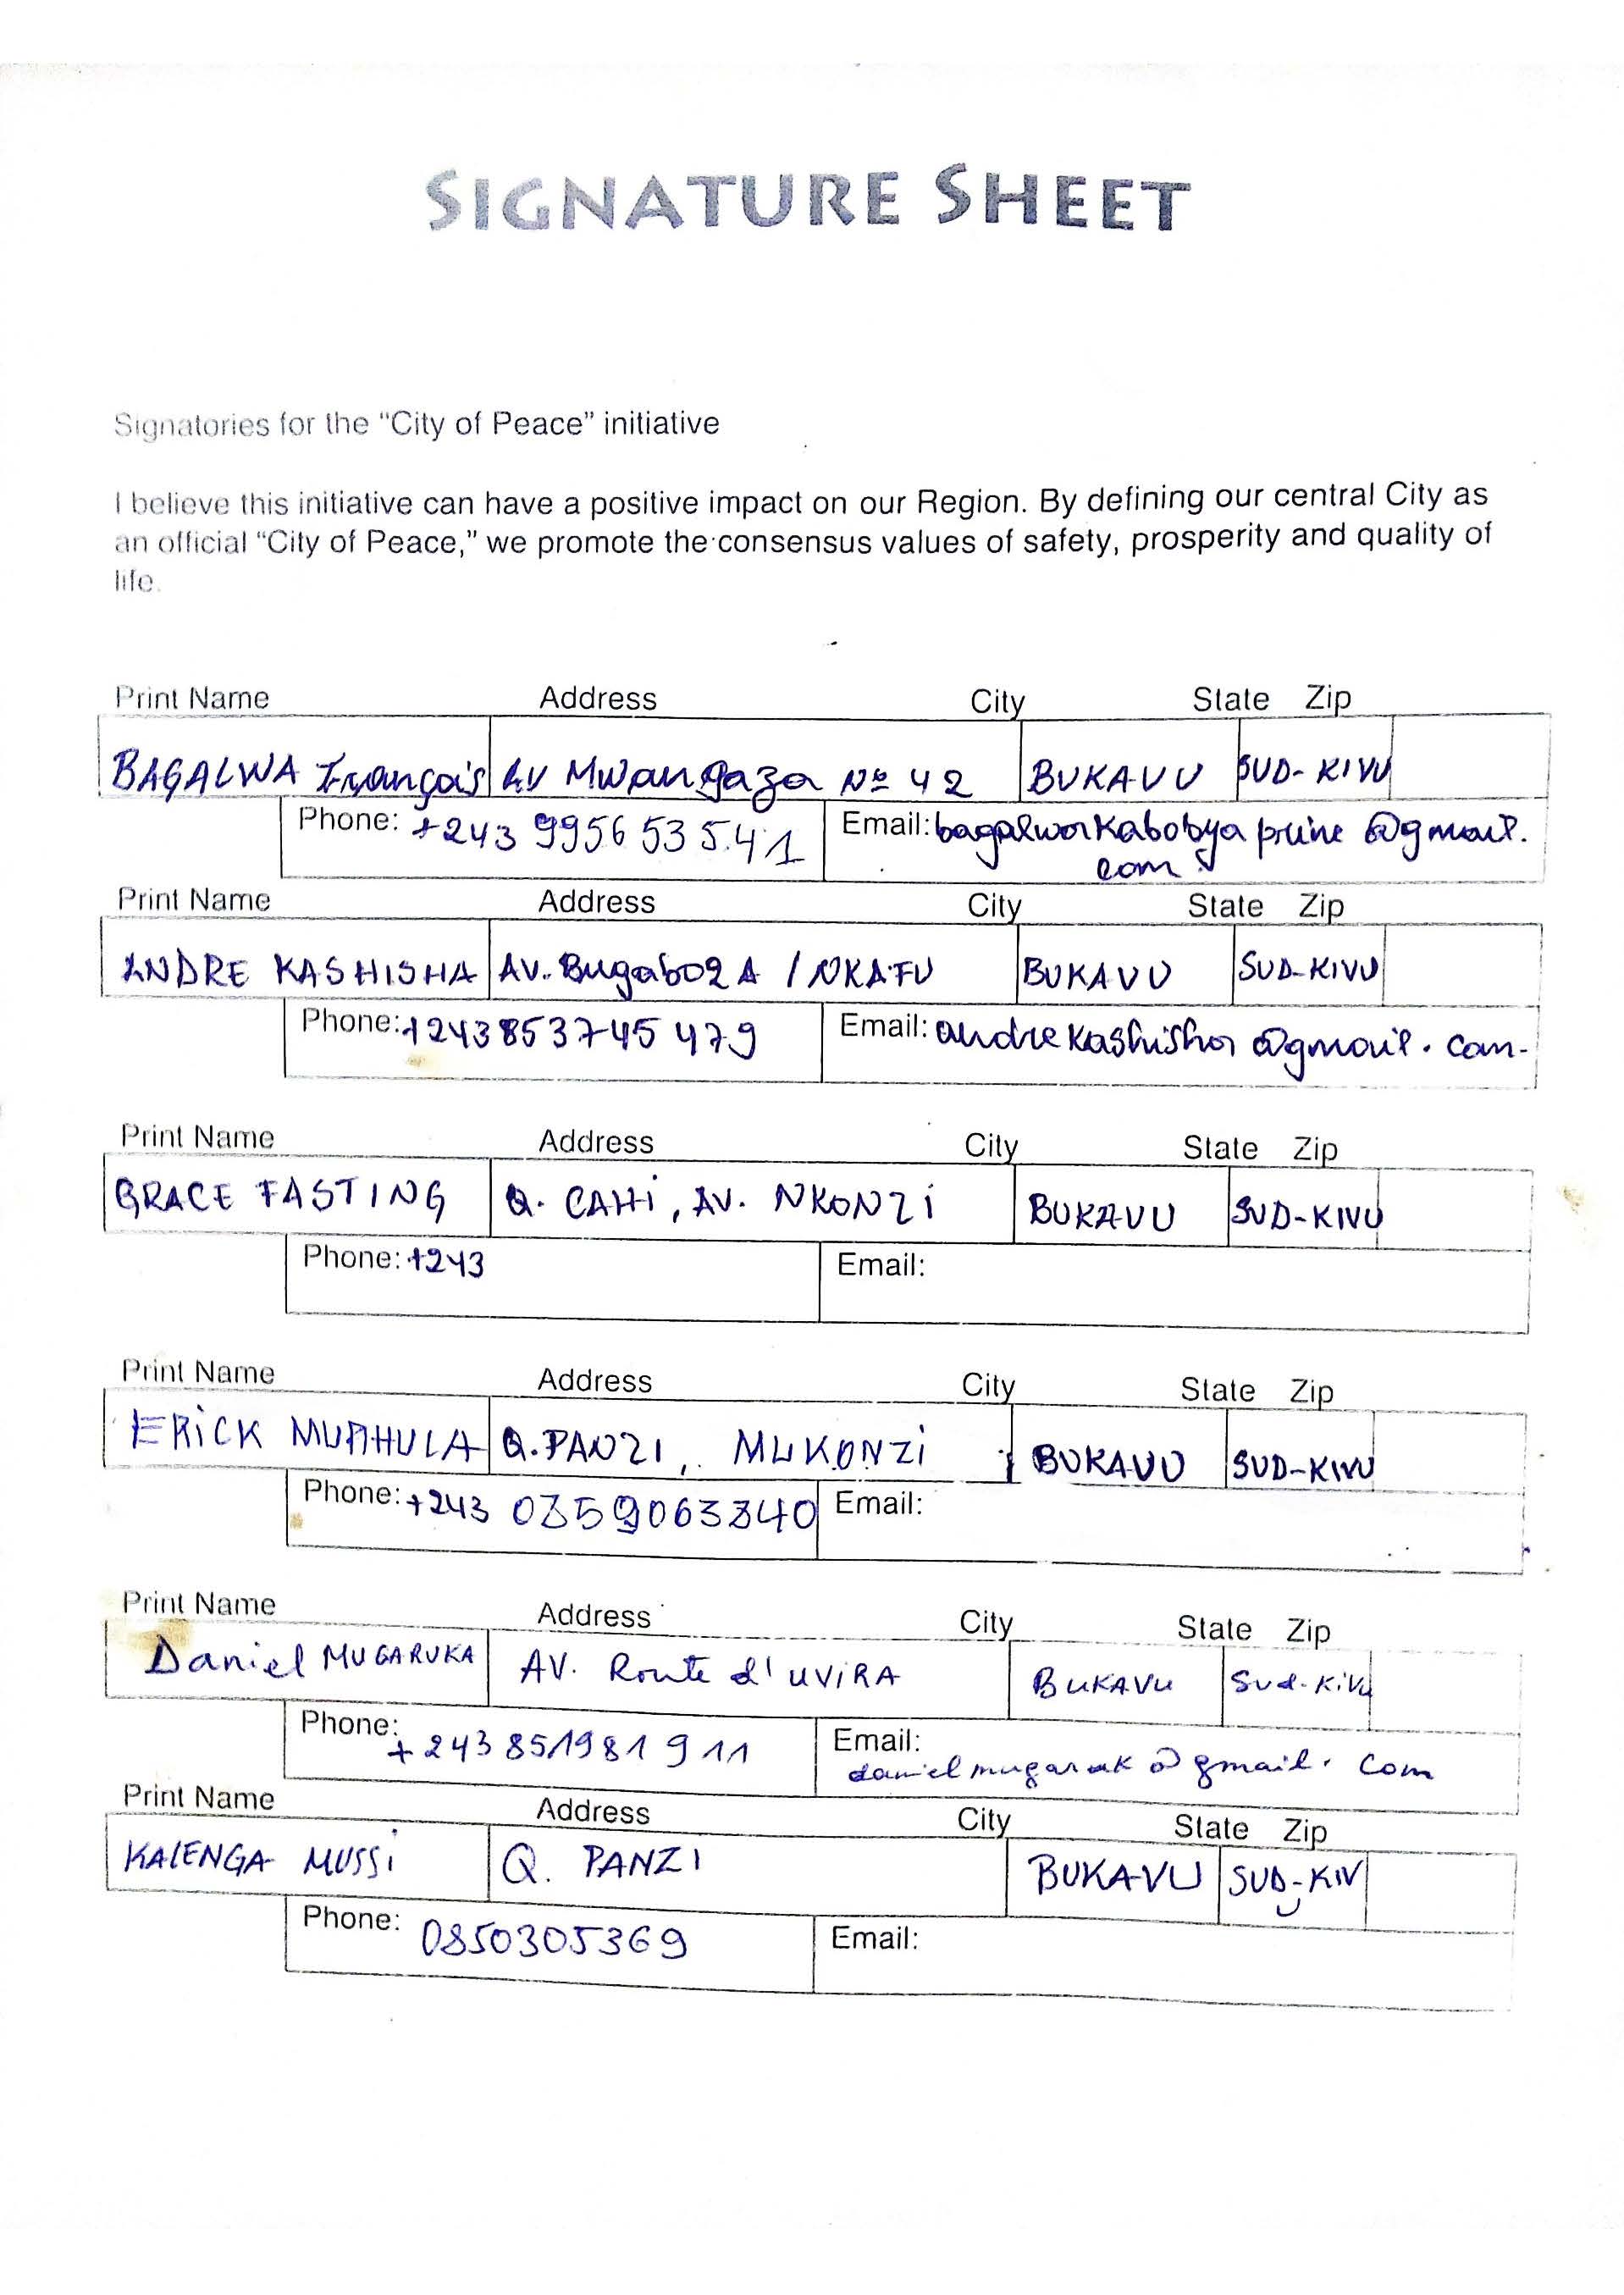 SIGNATURE SHEET
Signatories for the "City of Peace" initiative
I believe this initiative can have a positive impact on our Region. By defining our central City as
an official "City of Peace," we promote the consensus values of safety, prosperity and quality of
life.
Print Name Address City State Zip
BAGALWA François AV Mwangaza Nº 42 BUKAVU SUD-KIVU
Phone: +243 995653541 Email: bagalwakabobyaprine@gmail.
com
Print Name Address City State Zip
ANDRE KASHISHA AV. Bugabo2A / NKAFU BUKAVU SUD-KIVU
Phone: +243853745479 Email: andrekashisha@gmail.com-
Print Name Address City State Zip
GRACE FASTING Q. CAHi, AV. NKONZi BUKAVU SUD-KIVU
Phone: +243 Email:
Print Name Address City State Zip
ERiCK Q.PANZI, MUKONZi BUKAVU SUD-KIVU
Phone: +243 Email:
Print Name Address City State Zip
Daniel MUGARUKA AV. Route d'UViRA BUKAVU Sud-KiVu
Phone: +243851981911 Email:
danielmugaruk@gmail.com
Print Name Address City State Zip
KALENGA MUSSi Q. PANZI BUKAVU SUD-KIV
U
Phone: 0850305369 Email: